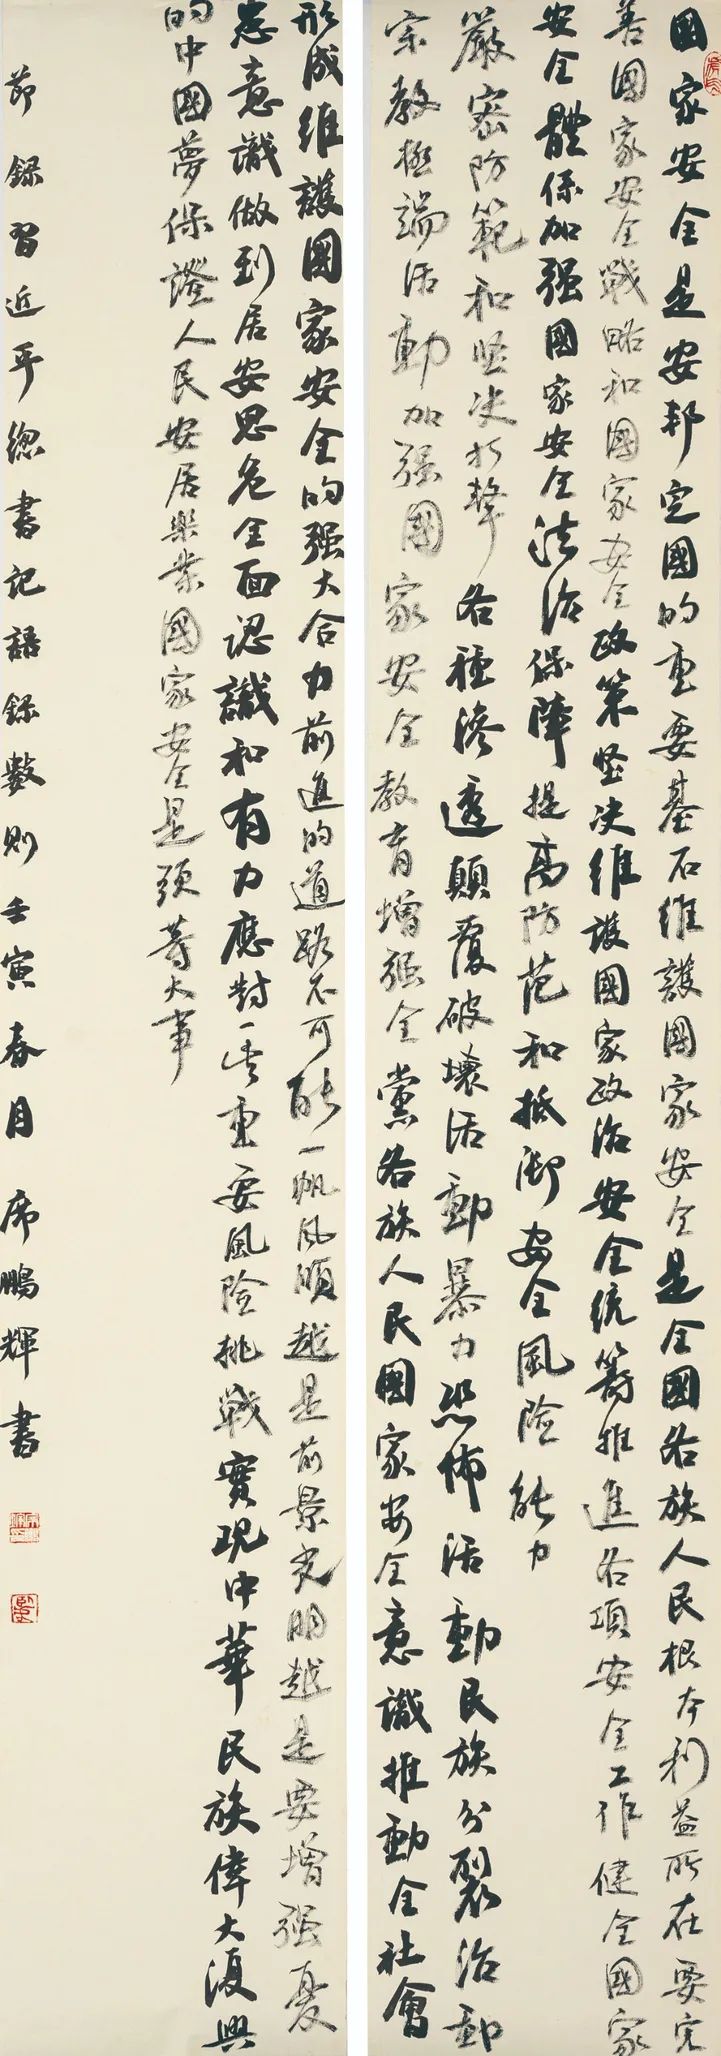 國家安全是安邦定國的重要基石維護國家安全是全國各族人民根本利益所在要完
善國家安全戰略和國家安全政策坚决維護國家政治安全統籌推進各項安全工作健全國家
安全體係加强國家安全法治保障提高防范和抵御安全風險能力
嚴密防範和坚决打擊各種滲透顛覆破壞活動暴力恐怖活動民族分裂活動
宗教極端活動加强國家安全教育增强全黨各族人民國家安全意識推動全社會
形成維護國家安全的强大合力前進的道路不可能一帆风順越是前景光明越是要增强憂
患意識做到居安思危全面認識和有力應對一些重要風險挑戰實現中華民族偉大復興
的中國夢保證人民安居樂業國家安全是頭等大事
節録習近平總書記語録數則壬寅春月 席鵬輝書